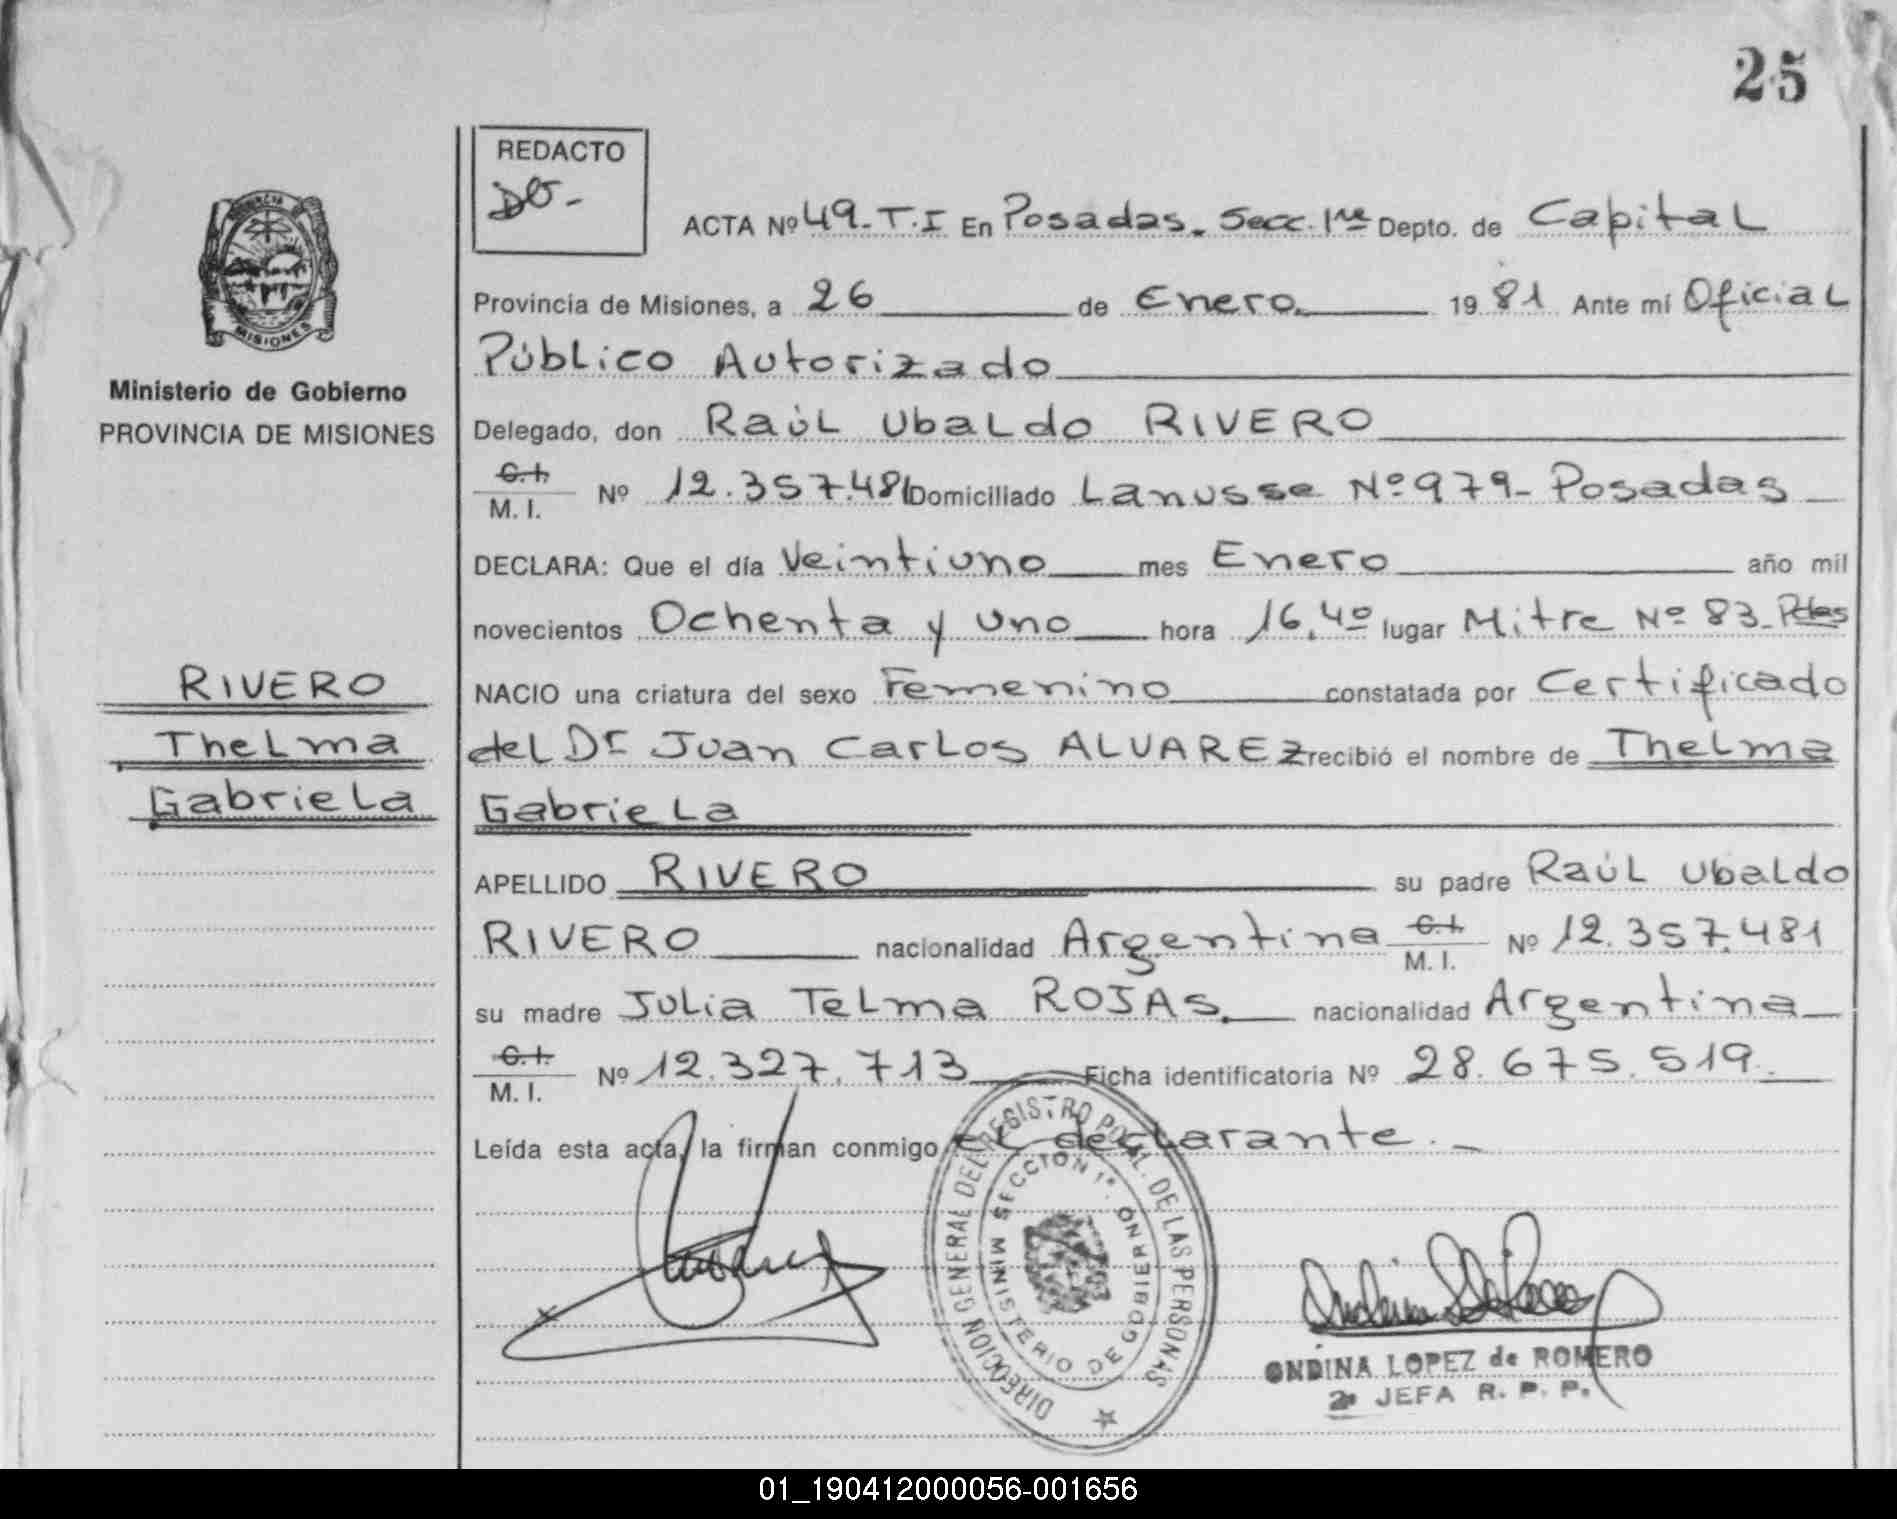 25
REDACTO
DO-
ACTA Nº 49-T.I En Posadas. Secc. 1ra Depto. de Capital
Provincia de Misiones, a 26 de Enero. 1981 Ante mí Oficial
Público Autorizado
Delegado, don Raúl Ubaldo RIVERO
C.I.
M. I. Nº 12.357.481 Domiciliado Lanusse Nº 979- Posadas
DECLARA: Que el día Veintiuno mes Enero año mil
novecientos Ochenta y uno hora 16,40 lugar Mitre Nº 83- Pdas
NACIO una criatura del sexo Femenino constatada por Certificado
del Dr Juan Carlos ALVAREZ recibió el nombre de Thelma
Gabriela
APELLIDO RIVERO su padre Raúl Ubaldo
RIVERO nacionalidad Argentina C.I. M. I. Nº 12.357.481
su madre Julia Telma ROJAS. nacionalidad Argentina
C.I.
M. I. Nº 12.327.713 Ficha identificatoria Nº 28.675.519.
Leída esta acta, la firman conmigo el declarante.-
PROVINCIA DE
MISIONES
Ministerio de Gobierno
PROVINCIA DE MISIONES
RIVERO
Thelma
Gabriela
DIRECCION GENERAL DEL REGISTRO DE LAS PERSONAS
SECCION 1ª.
MINISTERIO DE GOBIERNO
ONDINA LOPEZ de ROMERO
2ª JEFA R. P. P.
01_190412000056-001656